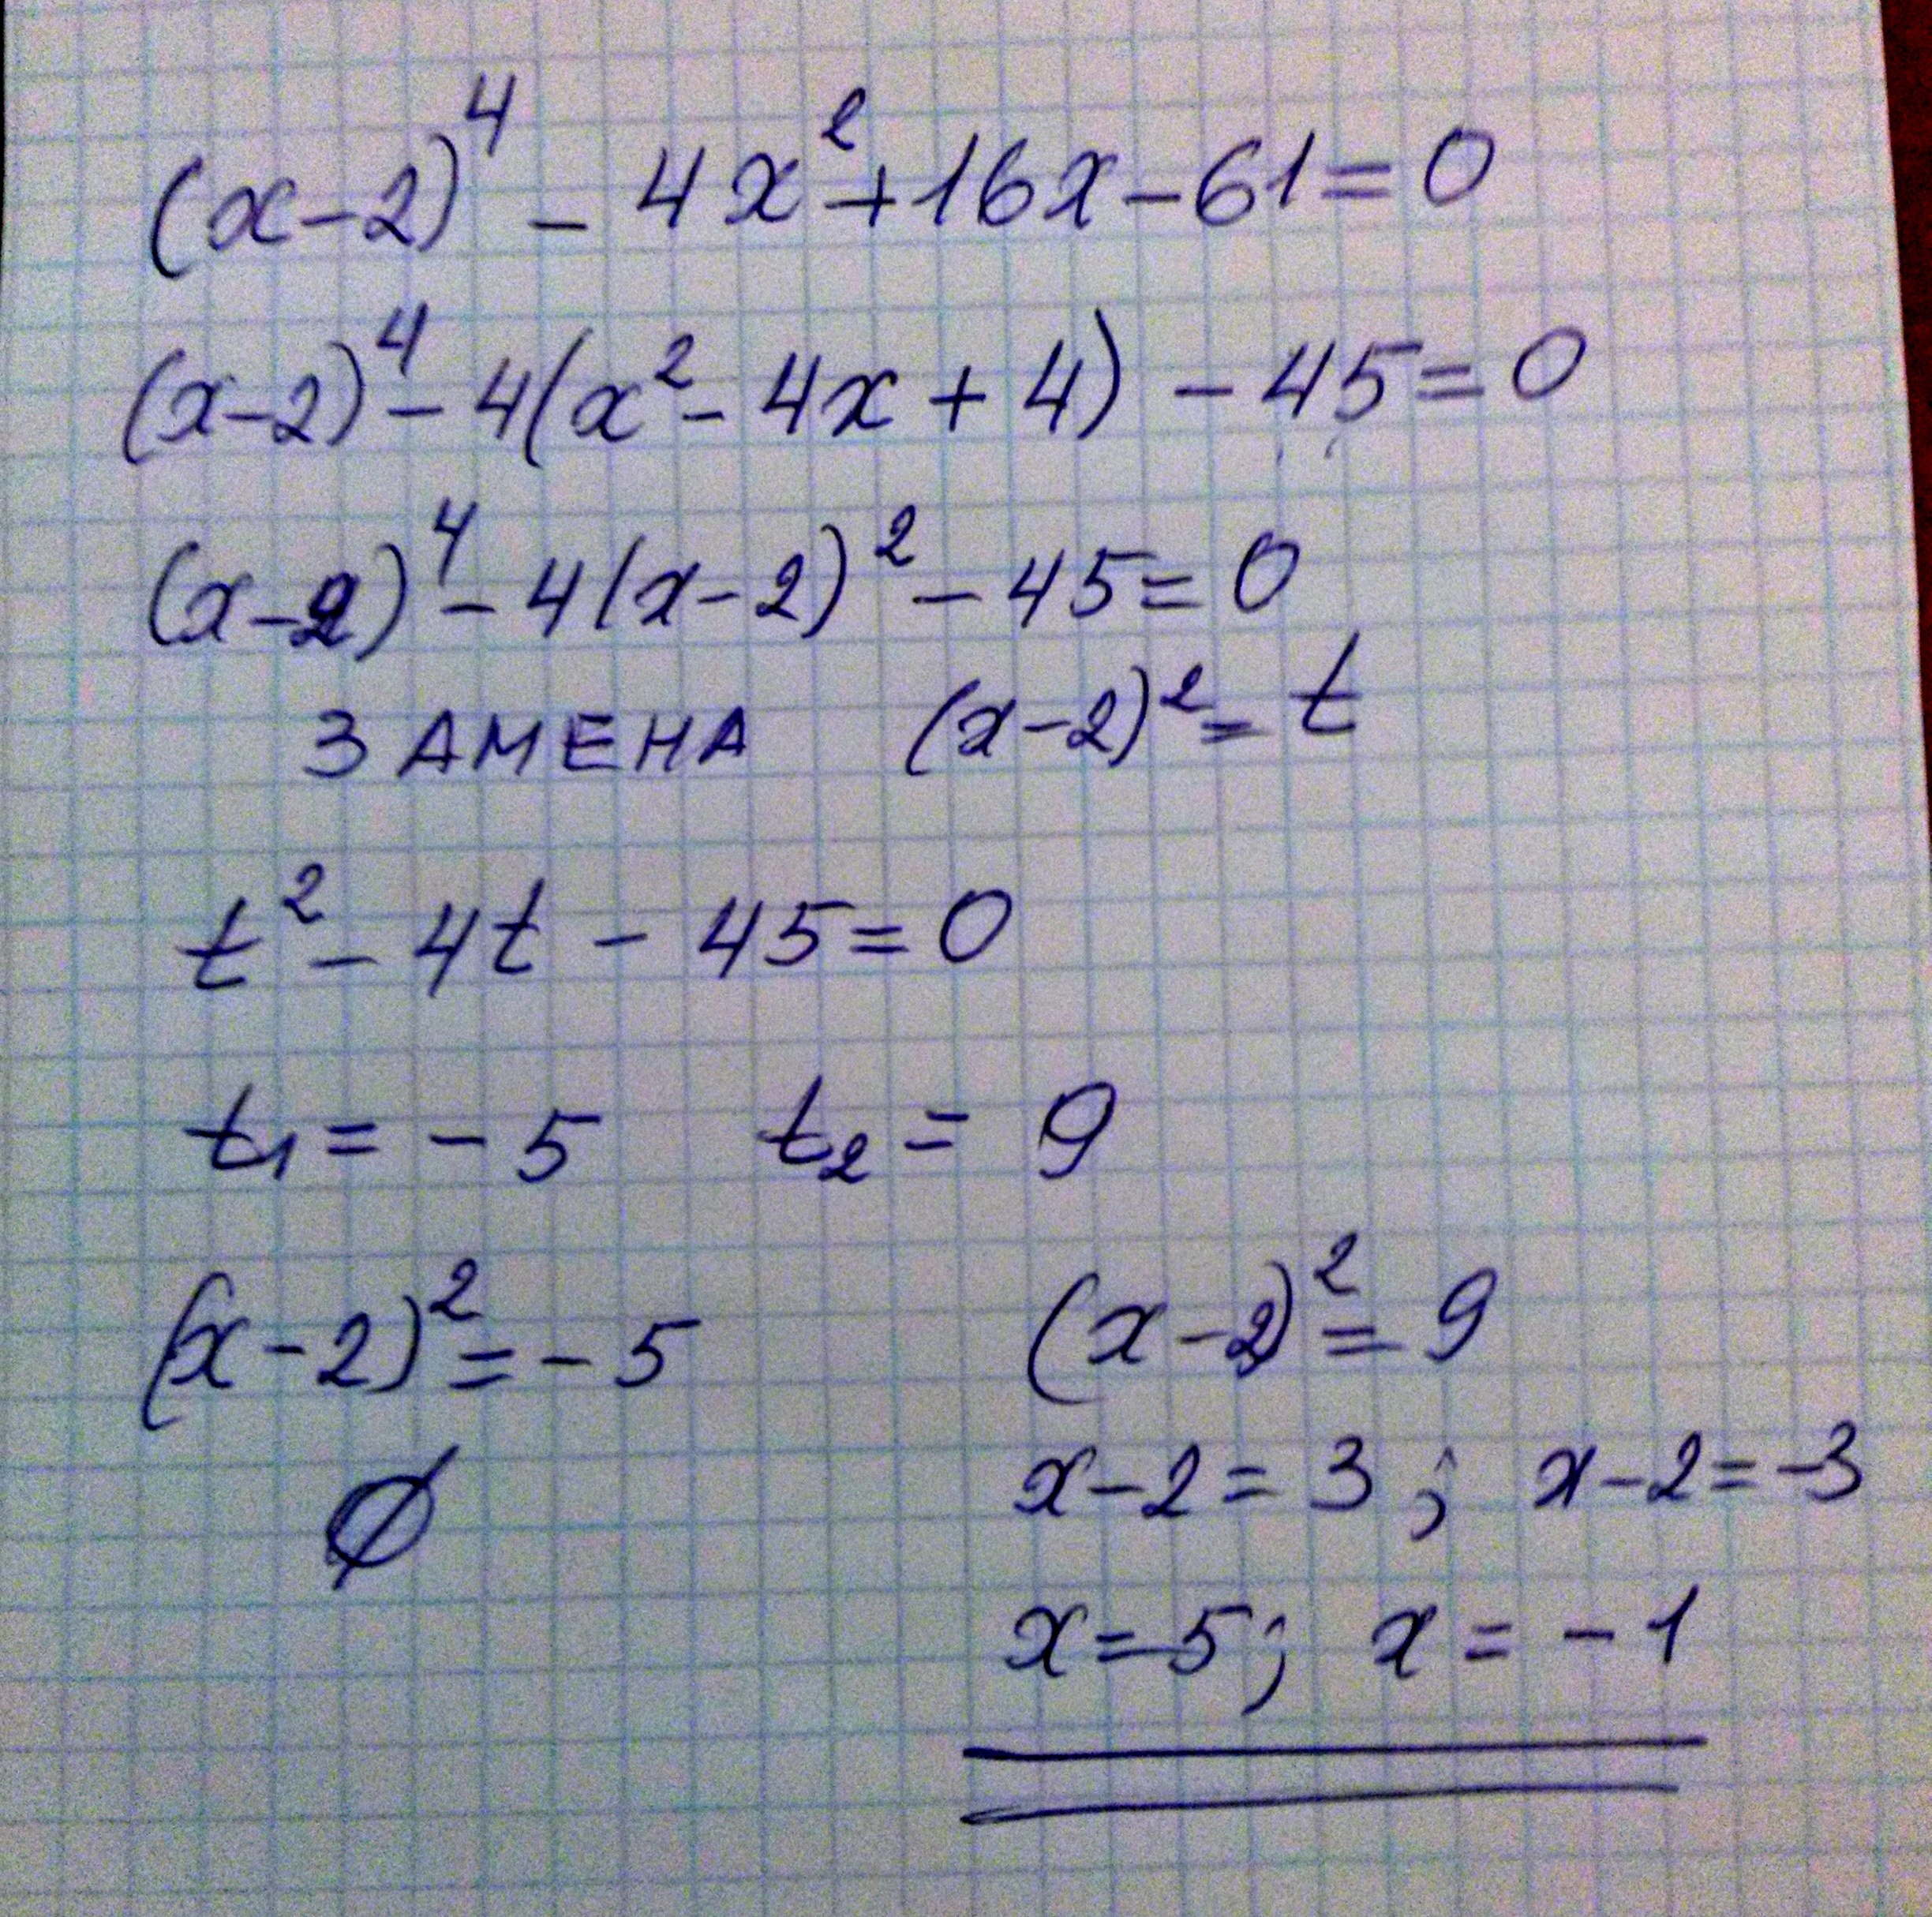 (x-2)⁴ - 4x² + 16x - 61 = 0
(x-2)⁴ - 4(x² - 4x + 4) - 45 = 0
(x-2)⁴ - 4(x-2)² - 45 = 0
ЗАМЕНА (x-2)² = t
t² - 4t - 45 = 0
t₁ = -5 t₂ = 9
(x-2)² = -5 (x-2)² = 9
∅ x-2 = 3; x-2 = -3
x = 5; x = -1